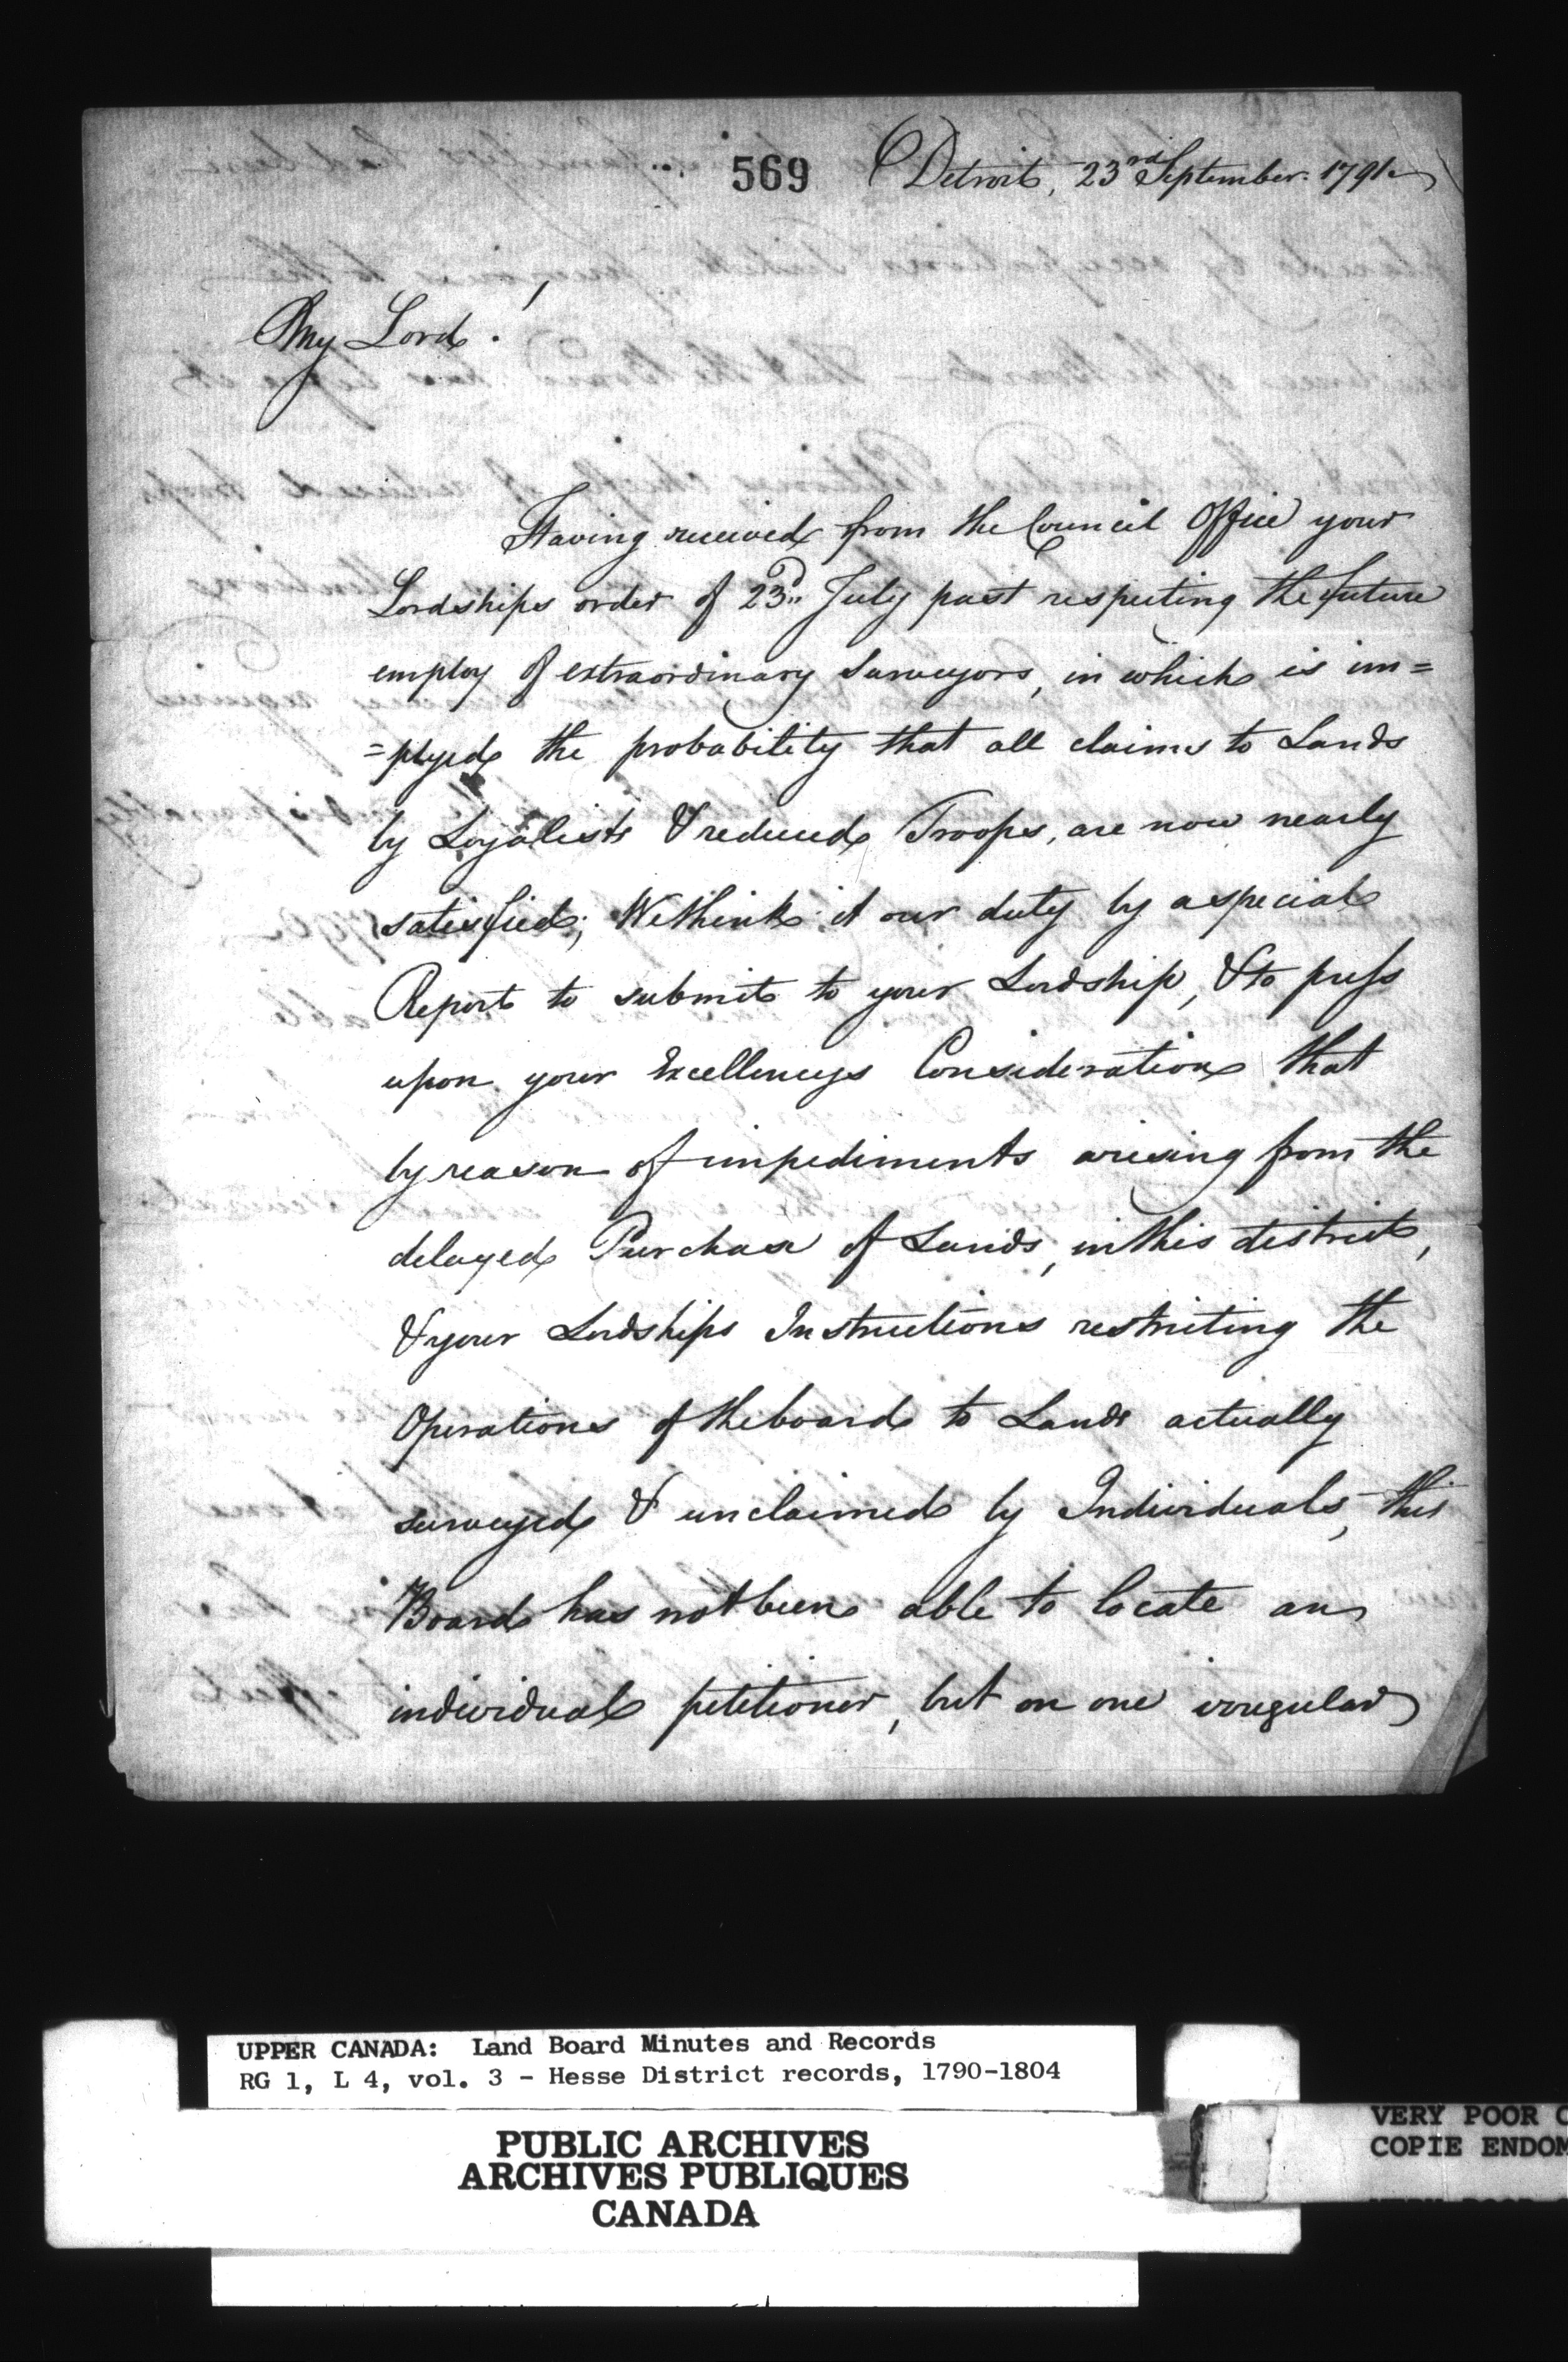 569 Detroit, 23rd September. 1791.
My Lord!
Having received from the Council Office your
Lordships order of 23d July past respecting the future
employ of extraordinary Surveyors, in which is im=
=plyed the probability that all claims to Lands
by Loyalists & reduced Troops, are now nearly
satisfied; We think it our duty by a special
Report to submit to your Lordship, & to press
upon your Excellencys Consideration that
by reason of impediments arising from the
delayed Purchase of Lands, in this district,
& your Lordships Instructions restricting the
Operations of the board to Lands actually
surveyed & unclaimed by Individuals, this
Board has not been able to locate an
individual petitioner, but on one irregular
UPPER CANADA: Land Board Minutes and Records
RG 1, L 4, vol. 3 - Hesse District records, 1790-1804
PUBLIC ARCHIVES
ARCHIVES PUBLIQUES
CANADA
VERY POOR C
COPIE ENDOM